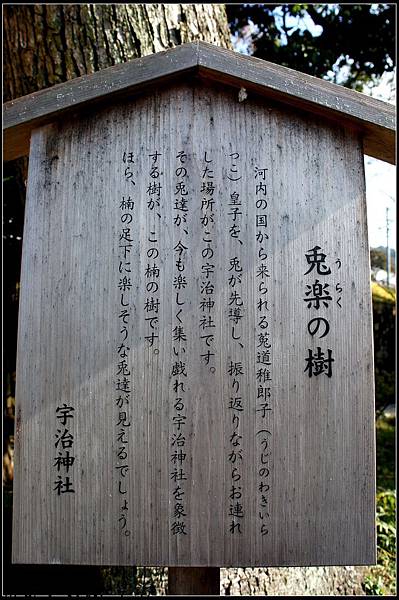 兎楽の樹
うらく
河内の国から来られる莵道稚郎子（うじのわきいら
つこ）皇子を、兎が先導し、振り返りながらお連れ
した場所がこの宇治神社です。
その兎達が、今も楽しく集い戯れる宇治神社を象徴
する樹が、この楠の樹です。
ほら、楠の足下に楽しそうな兎達が見えるでしょう。
宇治神社